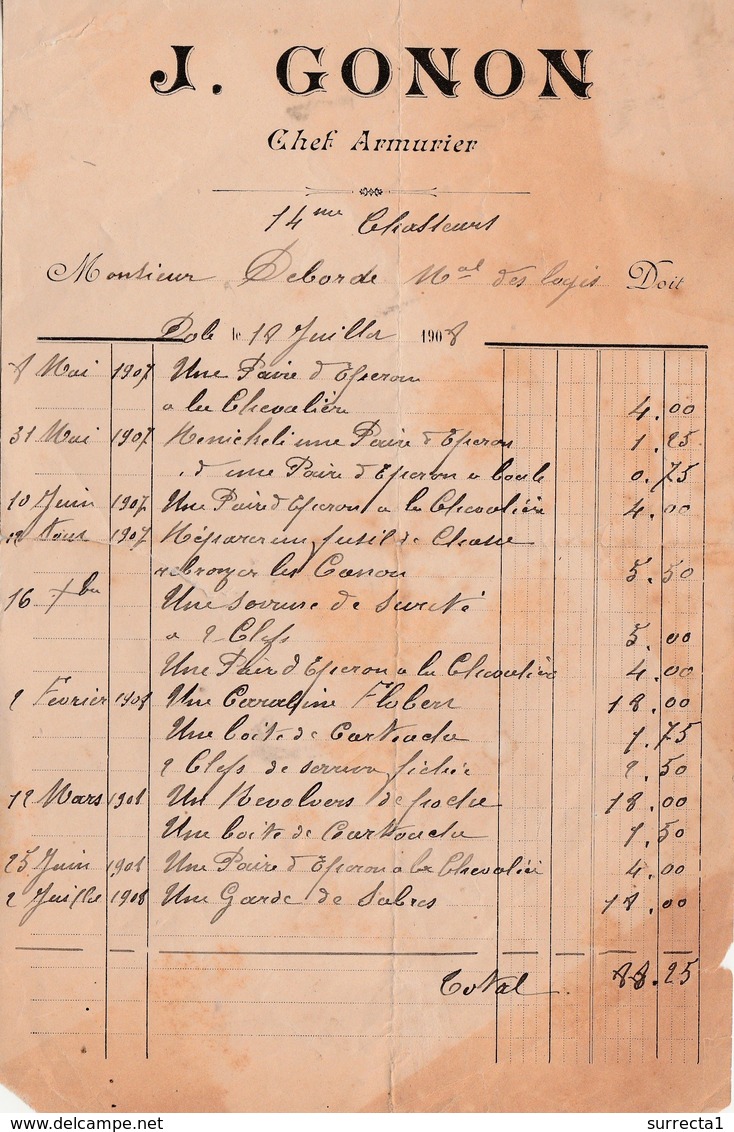 J. GONON
Chef Armurier
14me Chasseurs
Monsieur Deborde Mal des logis Doit
Dole le 18 Juillet 1908
8 Mai 1907 Une Paire d'Eperon
a la Chevalière 4.00
31 Mai 1907 une Paire d'Eperon 1.25
d une Paire d'Eperon a boule 0.75
10 Juin 1907 Une Paire d'Eperon a la Chevalière 4.00
12 Aout 1907 Réparer un fusil de Chasse
rebronzer les Canon 5.50
16 Xbre Une de Sureté
a 2 Clefs 5.00
Une Paire d'Eperon a la Chevalière 4.00
2 Fevrier 1908 Une Carabine Flobert 18.00
Une boite de Cartouche 1.75
2 Clefs de 2.50
12 Mars 1908 Un Revolvers de poche 18.00
Une boite de Cartouche 1.50
25 Juin 1908 Une Paire d'Eperon a la Chevalière 4.00
2 Juillet 1908 Une Garde de Sabres 18.00
Total 88.25
surrecta1